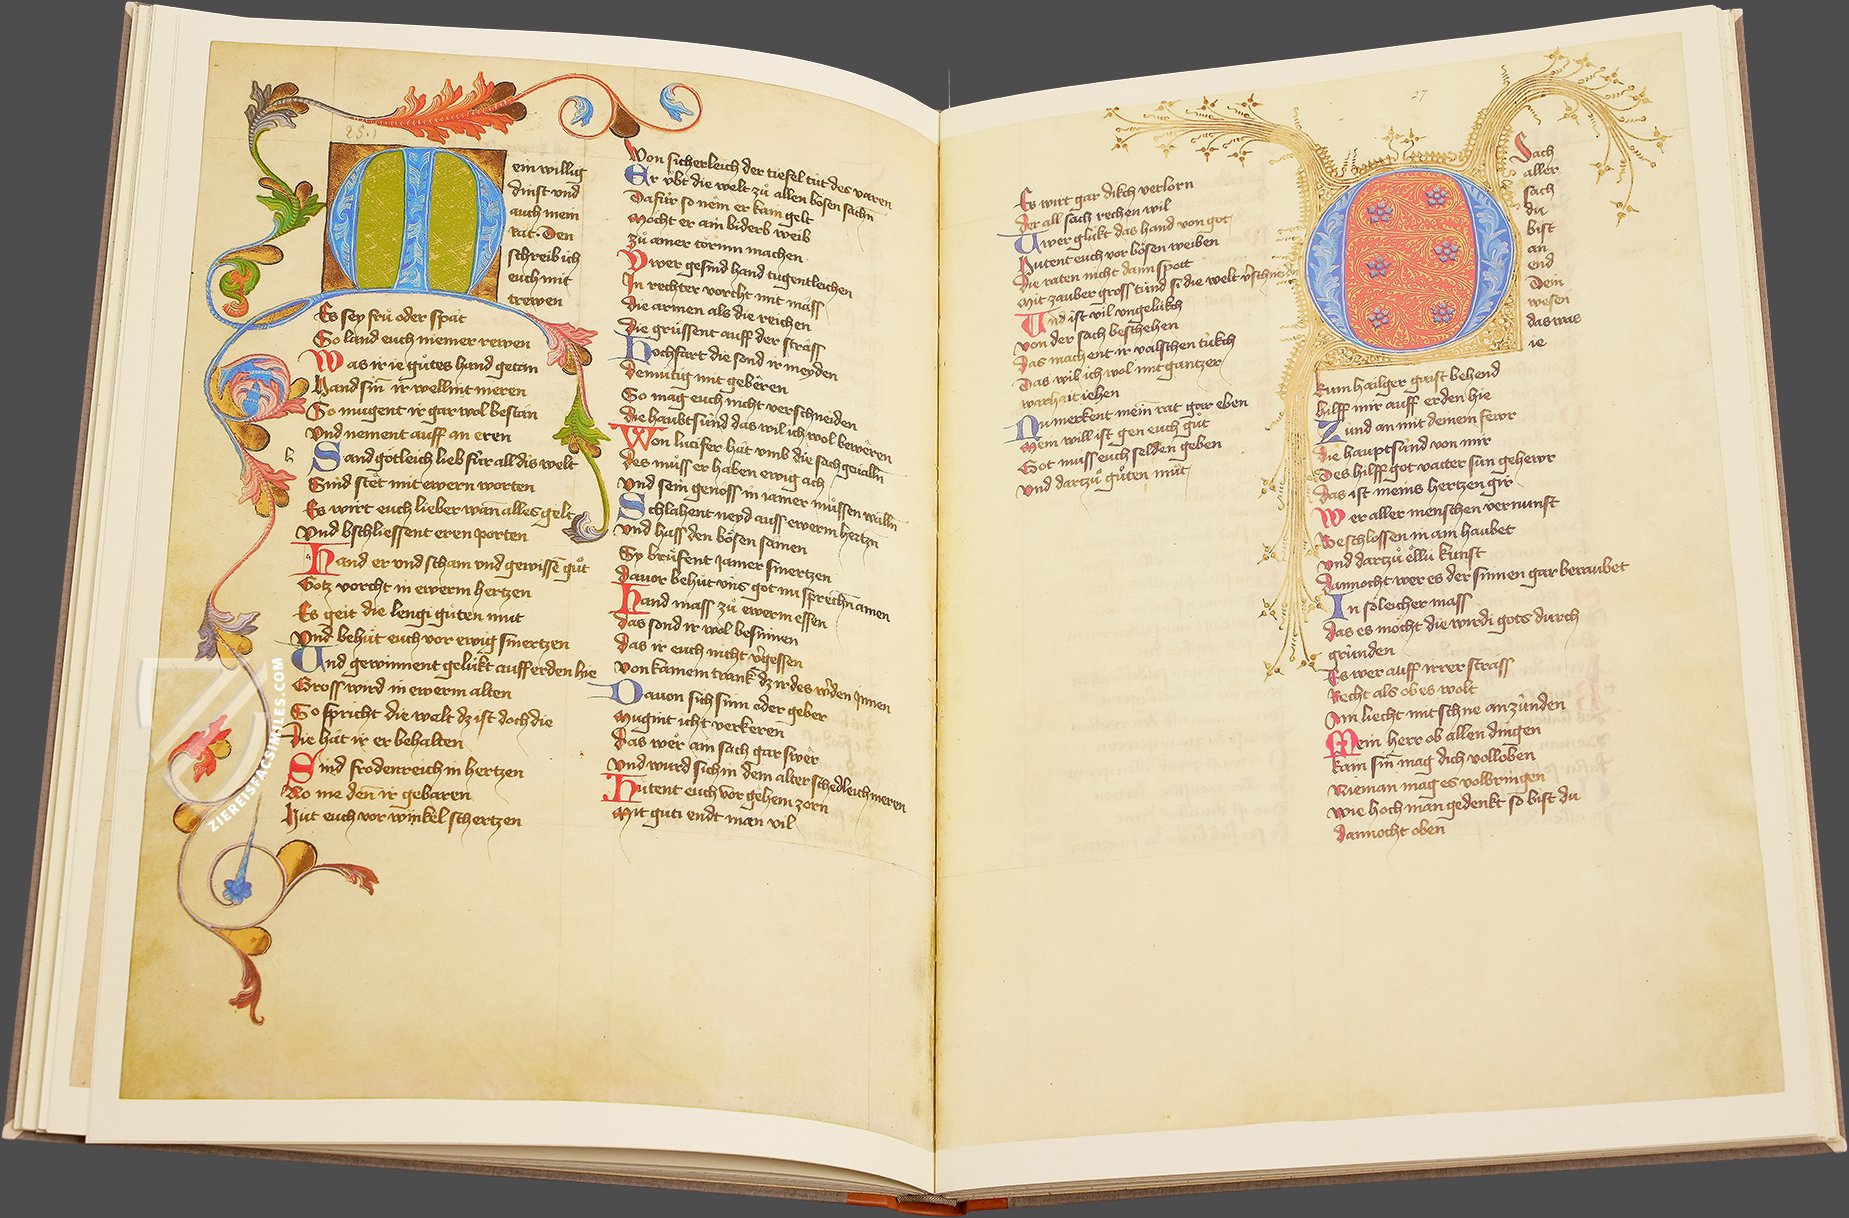 ein willig
dinst vnd
auch mein
rat. Den
schreib ich
euch mit
trewen
Es sey frů oder spät
So land euch niemer rewen
Was ir ie gůtes hand getan
Hand sin̄ ir wellint meren
So mugent ir gar wol bestan
Vnd nement auff an eren
Sand götleich lieb fúr all dis welt
Sind stet mit ewern worten
Es wirt euch lieber wān alles gelt
Vnd bschliessent eren porten
Hand er vnd scham vnd gewissē gůt
Gotz vorcht in ewerm hertzen
Es geit die lengi gůten můt
Vnd behút euch vor ewig smertzen
Und gewinnent gelúkt auff erden hie
Gross wird in ewerm alten
So spricht die welt dz ist doch die
Die hät ir er behalten
Sind frödenreich in hertzen
No me den̄ ir gebaren
Hút euch vor winkel schertzen
Von sicherleich der tiefel tůt des varen
Er v̈bt die welt zů allen bösen sachn̄
Dafúr so nem er kam gelt
Möcht er ain biderb weib
Zů ainer törinn machen
Vwer gesind hand tugentleichen
In rechter vorcht mit mass
Die armen als die reichen
Die grússent auff der strass
Hochfart die sond ir meyden
Demútig mit gebëren
So mag euch nicht verschneiden
Die haubtsúnd das wil ich wol bewëren
Won lucifer hät vmb die sach geualln̄
Des můss er haben ewig ach
Vnd sein genöss in iamer můssen walln̄
Schlahent neyd auss ewerm hertzn̄
Vnd hass den bösen samen
Sy brúfent jamer smertzen
Dauor behút vns got nu sprechn̄ amen
Hand mass zů ewerm essen
Das sond ir wol besinnen
Das ir euch nicht v̄gessen
Von kainem trank dz ir des wͦden jnnen
Dauon sich sinn oder geber
Mugint icht verkeren̄
Das wër ain sach gar swër
Vnd wurd sich in dem alter schedleich meren
Hútent euch vor gehem zorn
Mit gúti endt man vil
27
Es wirt gar dikch verlorn
Der all sach rechen wil
Uwer glúkt das hand von got
Hútent euch vor bösen weiben
Die raten nicht dann spott
Mit zauber gross súnd si die welt
Und ist vil vnglúkch
Von der sach beschehen
Das machent ir valschen túkch
Das wil ich wol mit gantzer
warhait iehen
Nu merkent mein rat gar eben
Mein will ist gen euch gůt
Got muss euch selden geben
Vnd dartzů gůten můt
Sach
aller
sach
du
bist
an
end
Dein
wesen
das was
ie
kum hailger gaist behend
hilff mir auff erden hie
Zúnd an mit deinem fewr
Die hauptsúnd von mir
Des hilff got vatter sun gehewr
Das ist meins hertzen gir
Wer aller menschen vernunft
Beschlossen in aim haubet
Vnd dartzů elli kunst
Dannocht wer es der sinnen gar beraubet
In söleicher mass
Das es möcht die wirdi gots durch
gründen
Es wer auff irrer strass
Recht als ob es wolt
Ain liecht mit schne an zúnden
Mein herr ob allen dingen
kain sin̄ mag dich volloben
Nieman mag es volbringen
Wie hoch man gedenkt so bist du
dannocht oben
ZIEREISFACSIMILES.COM